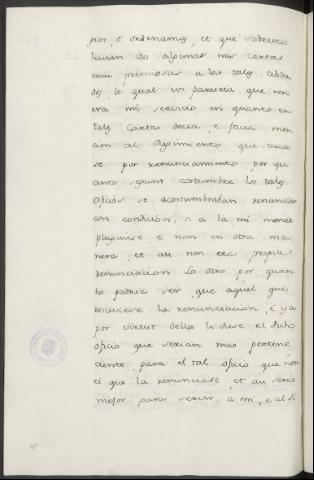 pios, é ordenamos, et que sobrello
havian ido algunas mis cartas
mui premiosas a las tales cibda
des, lo qual vos parecia que non
era mi servicio en quanto en
tales Cartas decia, e facea men
cion del Regimiento que vaca
se por renunciamiento por qu
anto segunt costumbre los tales
oficios se acostumbraban renunciar
con condicion, si a la mi merced
ploguiese e non en otra ma
nera, et au non era propia
renunciacion. Lo otro por quan
to podria ser que aquel que
hiciese la renunciacion, é ya
por virtut della le diese el dicho
oficio que serian mas pertene
ciente para el tal oficio que non
el que la renunciase, et au seria
mejor para servir a mi, e al di